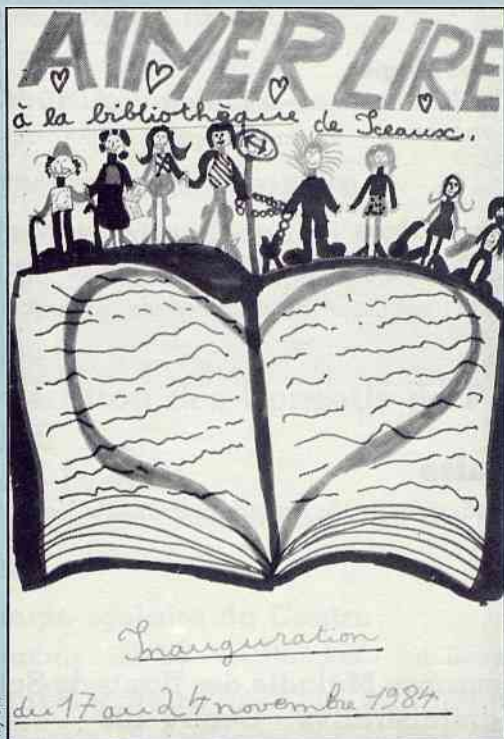 AIMER LIRE
à la bibliothèque de Sceaux.
Inauguration
du 17 au 24 novembre 1984